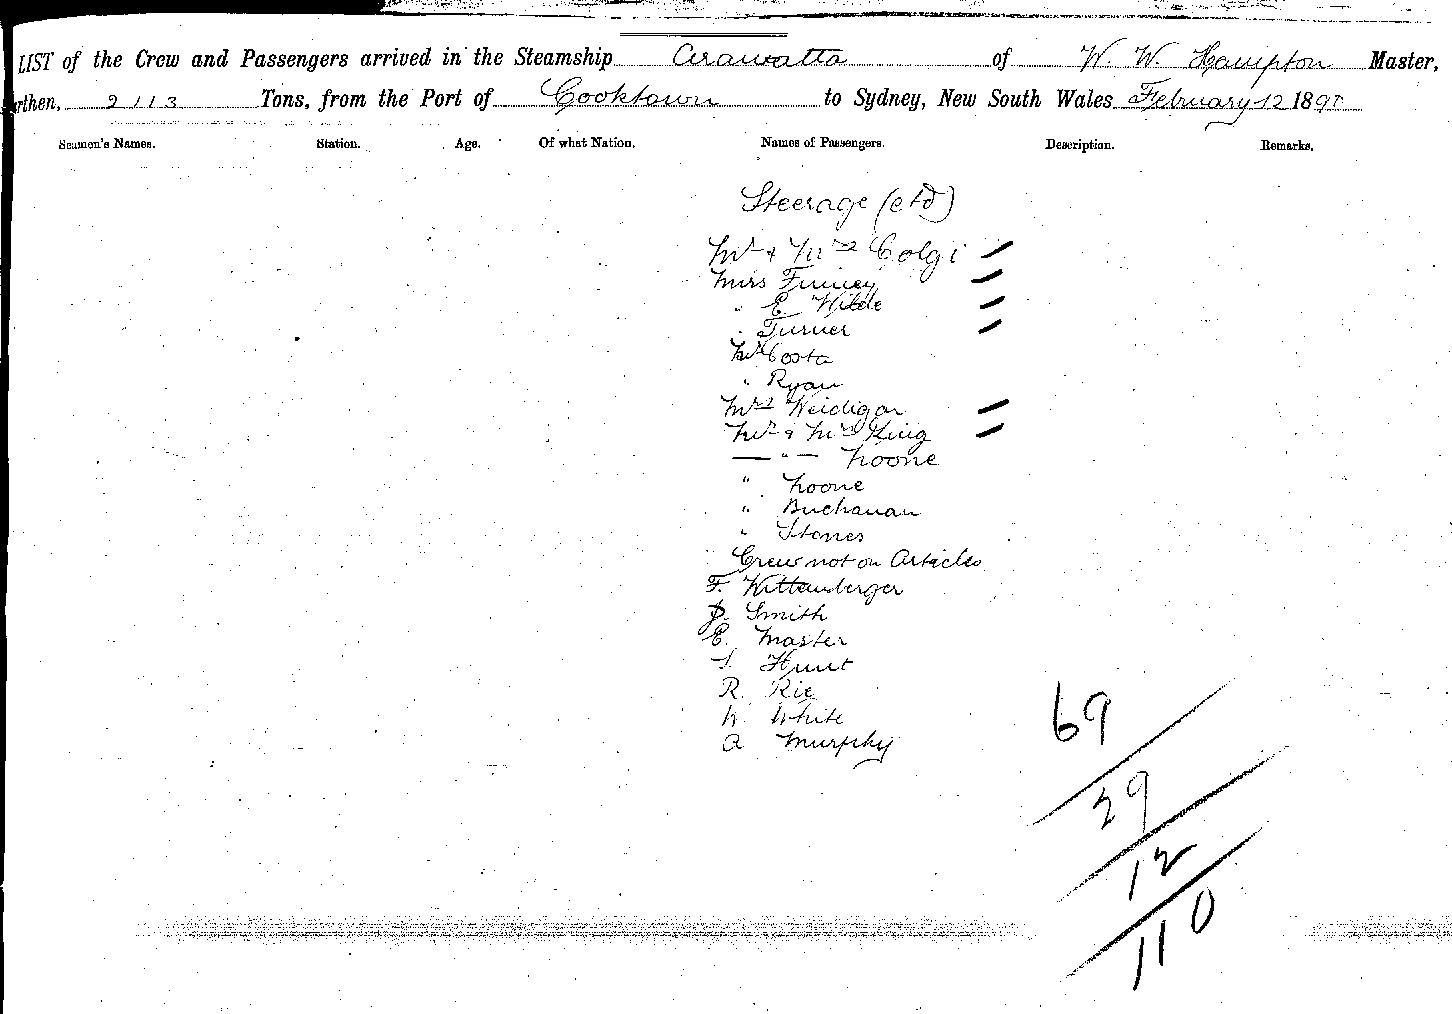 LIST of the Crew and Passengers arrived in the Steamship Arawatta of W. W. Hampton Master,
rthen, 2113 Tons, from the Port of Cooktown to Sydney, New South Wales February 12 189
Seamen's Names. Station. Age. Of what Nation. Names of Passengers. Description. Remarks.
Steerage (ctd)
Mr & Mrs Colgi
Miss Finney
" E Wilde
" Turner
Mr Costa
" Ryan
Mrs Weidigar
Mr & Mrs King
— " — Noone
" Noone
" Buchanan
" Stones
Crew not on Articles
F. Wittenberger
Smith
E. Master
Hunt
R. Rie
W. White
A Murphy
69
29
12
110